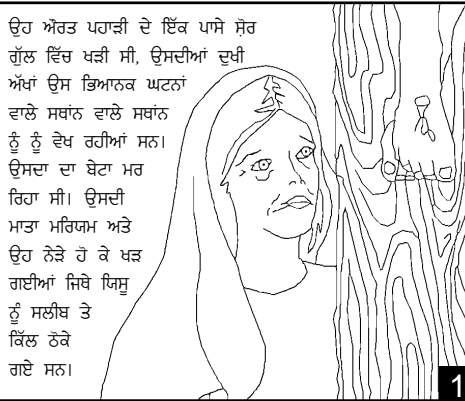 ਉਹ ਔਰਤ ਪਹਾੜੀ ਦੇ ਇੱਕ ਪਾਸੇ ਸ਼ੋਰ
ਗੁੱਲ ਵਿੱਚ ਖੜੀ ਸੀ, ਉਸਦੀਆਂ ਦੁਖੀ
ਅੱਖਾਂ ਉਸ ਭਿਆਨਕ ਘਟਨਾਂ
ਵਾਲੇ ਸਥਾਂਨ ਵਾਲੇ ਸਥਾਂਨ
ਨੂੰ ਨੂੰ ਵੇਖ ਰਹੀਆਂ ਸਨ।
ਉਸਦਾ ਦਾ ਬੇਟਾ ਮਰ
ਰਿਹਾ ਸੀ। ਉਸਦੀ
ਮਾਤਾ ਮਰਿਯਮ ਅਤੇ
ਉਹ ਨੇੜੇ ਹੋ ਕੇ ਖੜ
ਗਈਆਂ ਜਿਥੇ ਯਿਸੂ
ਨੂੰ ਸਲੀਬ ਤੇ
ਕਿੱਲ ਠੋਕੇ
ਗਏ ਸਨ।
1